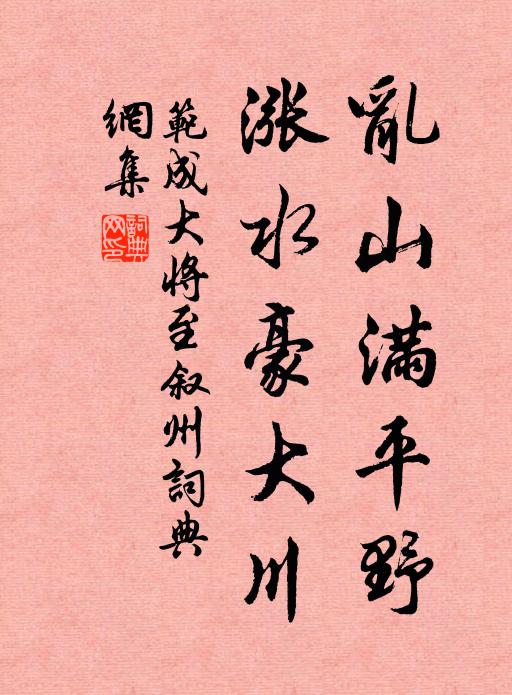 亂山滿平野
漲水豪大川
範成大將至叙州詞典
網集
詞典
网印